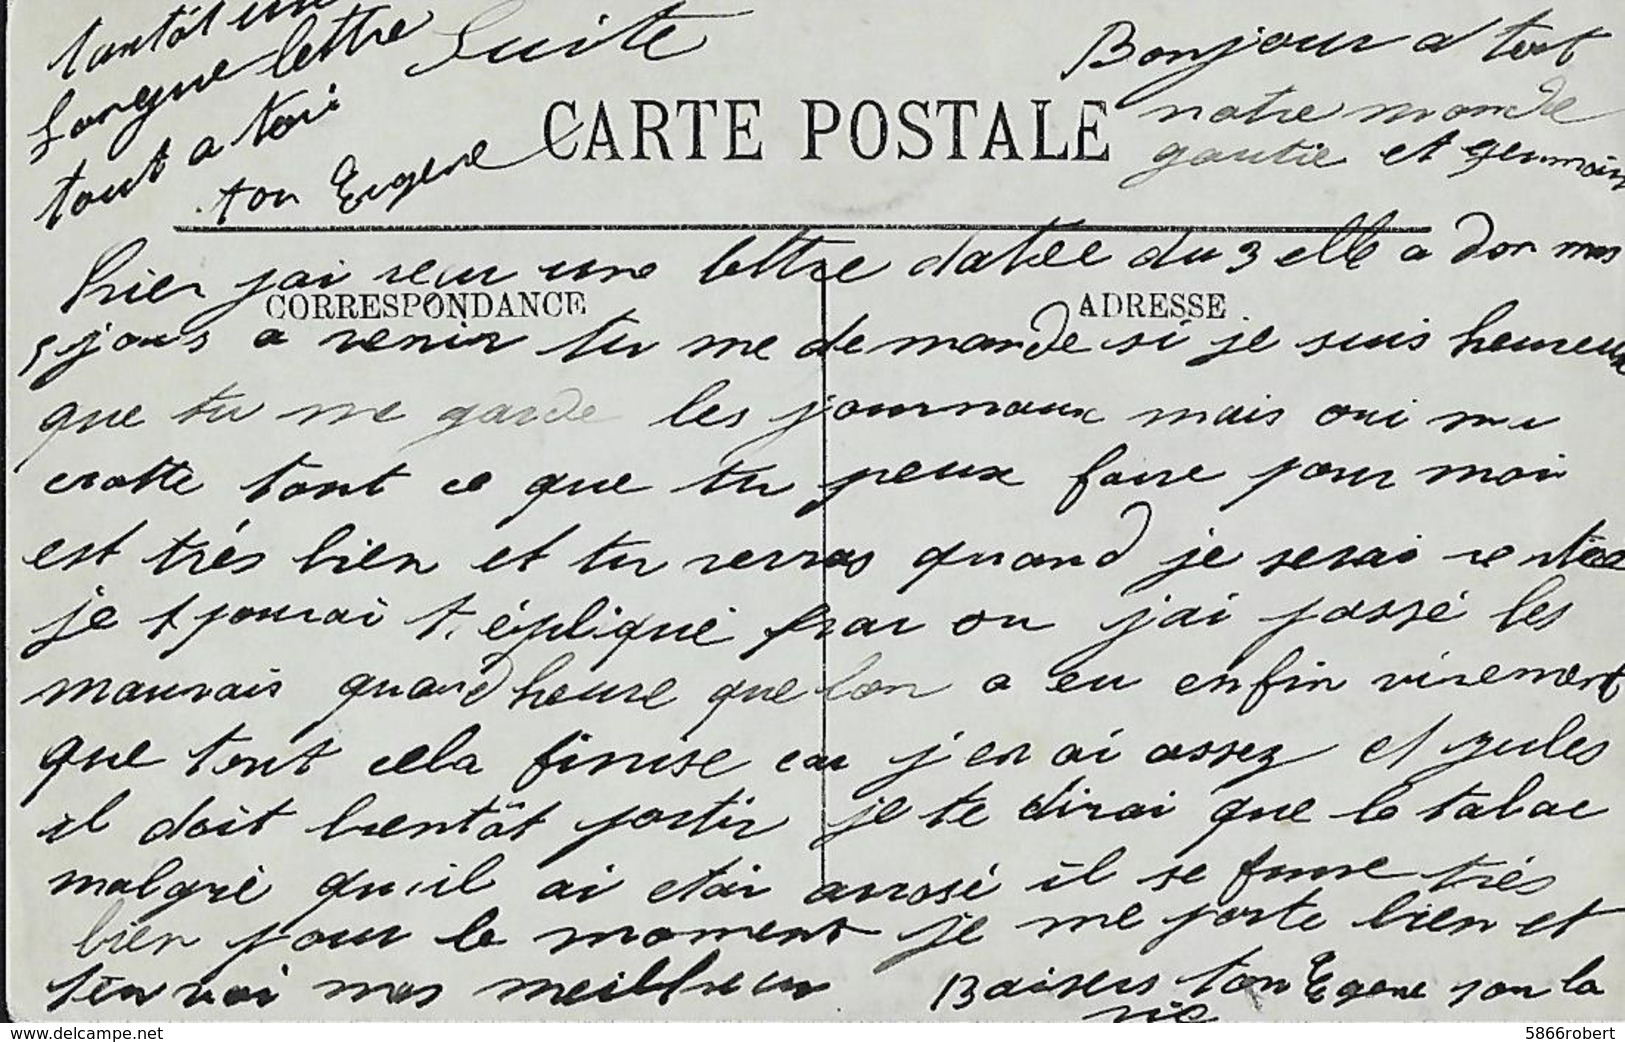 Suite
CARTE POSTALE
Bonjour a tout
notre monde
gautie et germain
hier jai recu une lettre datée du 3 elle a don mes
CORRESPONDANCE
ADRESSE
5 jours a venir tu me demande si je suis heureux
que tu me garde les journaux mais oui ma
crotte tout ce que tu peux faire pour moi
est très bien et tu verras quand je serai rentée
je pourai t épliqué par ou jai passé les
mauvais quard heure que lon a eu enfin vivement
que tout cela finise car j'en ai assez et jules
il doit bientôt partir je te dirai que le tabac
malgrè qu'il ai etai arrosé il se fume très
bien pour le moment je me porte bien et
t'envoi mes meilleur Baisers ton Egene pour la
vie
tantôt une
longue lettre
tout a toi
ton Eugene
5866robert